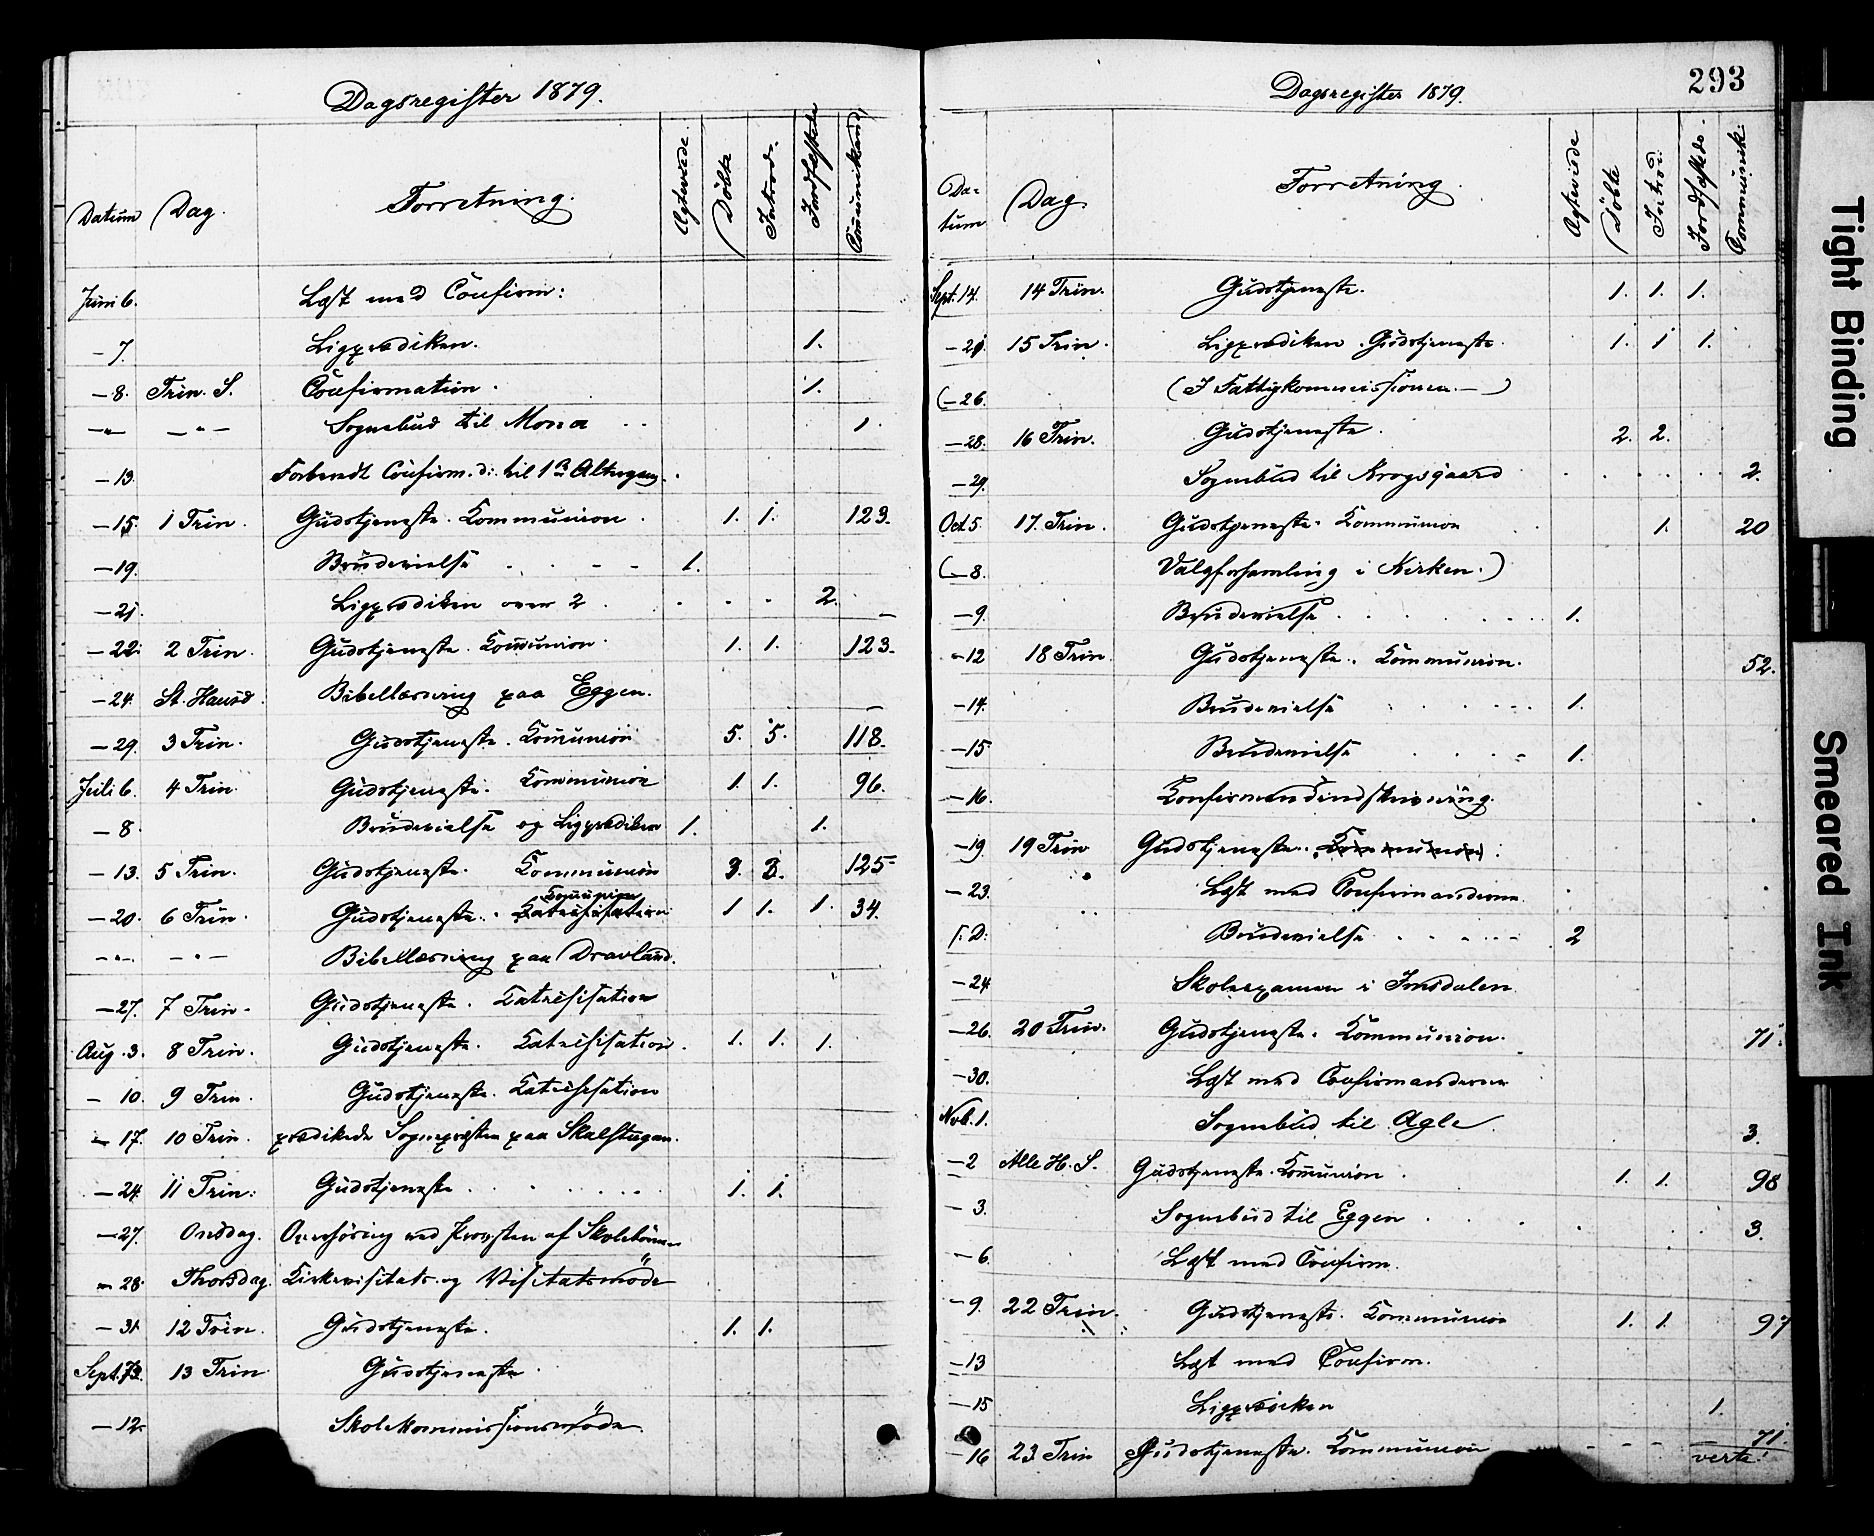 Dagsregister 1879.
Datum Dag. Forretning. Agteviede. Döbte Introd. Jordfæstede Communikand
Juni 6. Læst med Confirm:
— 7. Ligprædiken. 1.
— 8. Trin. S. Confirmation. 1.
— " — — " — Sognebud til Mona 1.
— 13. Forberedt Confirm. d: til 1ste Altergang.
— 15. 1 Trin. Gudstjeneste. Kommunion. 1. 1. 123.
— 19. Brudevielse 1.
— 21. Ligprædiken over 2 2.
— 22. 2 Trin. Gudstjeneste. Kommunion. 1. 1. 123.
— 24. St. Hansd. Bibellæsning paa Eggen.
— 29. 3 Trin. Gudstjeneste. Kommunion 5. 5. 118.
Juli 6. 4 Trin. Gudstjeneste. Kommunion 1. 1. 96.
— 8. Brudevielse og Ligprædiken 1. 1.
— 13. 5 Trin. Gudstjeneste. Kommunion 3. 3. 125
— 20. 6 Trin. Gudstjeneste. Katechisation Kommunion 1 1. 1. 34.
— " — — " — Bibellæsning paa Dravland.
— 27. 7 Trin. Gudstjeneste. Katechisation
Aug. 3. 8 Trin. Gudstjeneste. Katechisation. 1. 1. 1.
— 10. 9 Trin. Gudstjeneste. Katechisation
— 17. 10 Trin. prædikede Sognepresten paa Skalstugan.
— 24. 11 Trin: Gudstjeneste 1. 1.
— 27. Onsdag. Overhöring ved Provsten af Skolebörnene
— 28. Thorsdag. Kirkevisitats og Visitatsmöde
— 31. 12 Trin. Gudstjeneste. 1. 1.
Sept. 7. 13 Trin Gudstjeneste.
— 12. Skolekommissionsmöde
Dagsregister 1879.
293
Da-tum Dag. Forretning. Agteviede Döbte Introd. Jordfæstede. Communik:
Sept. 14. 14 Trin. Gudstjeneste. 1. 1. 1.
— 21. 15 Trin. Ligprædiken. Gudstjeneste. 1. 1 1.
(— 26. (I Fattigkommissionen. —)
— 28. 16 Trin. Gudstjeneste. 2. 2.
— 29. Sognebud til Krogsgaard 2.
Oct 5. 17. Trin. Gudstjeneste. Kommunion 1. 20
(— 8. Valgforsamling i Kirken.)
— 9. Brudevielse 1.
— 12 18 Trin. Gudstjeneste. Kommunion. 52.
— 14. Brudevielse 1.
— 15 Brudevielse 1.
— 16. Konfirmandindskrivning.
— 19. 19 Trin Gudstjeneste. Kommunion.
— 23. Læst med Confirmanderne
s. D: Brudevielse 2
— 24. Skoleexamen i Imsdalen.
— 26. 20 Trin. Gudstjeneste. Kommunion. 71.
— 30. Læst med Confirmanderne
Nvb. 1. Sognebud til Agle 3.
— 2 Alle H. S. Gudstjeneste. Kommunion 1. 1. 98
— 3. Sognebud til Eggen 3.
— 6. Læst med Confirm.
— 9. 22 Trin. Gudstjeneste. Kommunion 1. 1. 97
— 13 Læst med Confirm.
— 15 Ligprædiken 1.
— 16 23 Trin Gudstjeneste. Kommunion 71.
verte!
Tight Binding
Smeared Ink